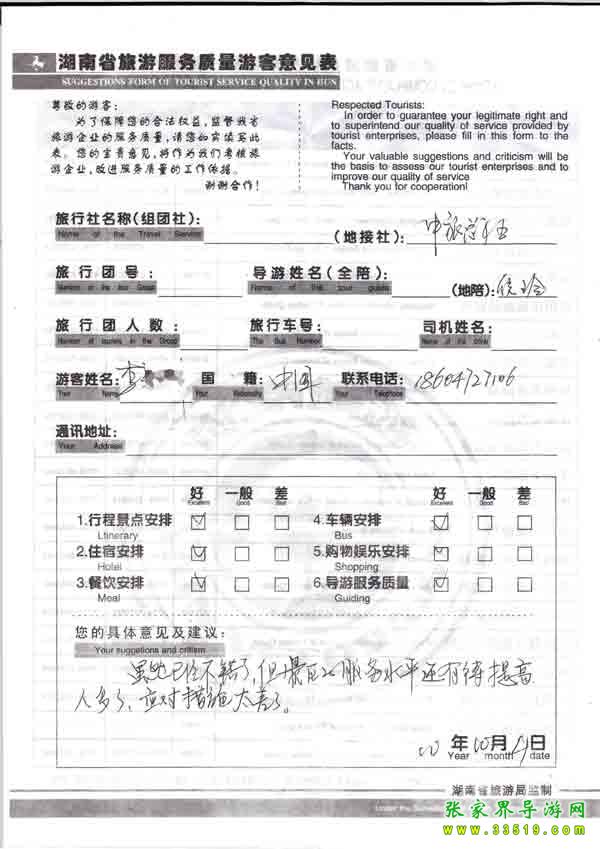 湖南省旅游服务质量游客意见表
SUGGESTIONS FORM OF TOURIST SERVICE QUALITY IN HUN
尊敬的游客:
为了保障您的合法权益,监督我省
旅游企业的服务质量,请您如实填写此
表。您的宝贵意见,将作为我们考核旅
游企业,改进服务质量的工作依据。
谢谢合作!
Respected Tourists:
In order to guarantee your legitimate right and
to superintend our quality of service provided by
tourist enterprises, please fill in this form to the
facts.
Your valuable suggestions and criticism will be
the basis to assess our tourist enterprises and to
improve our quality of service
Thank you for cooperation!
旅行社名称(组团社):
Name of the Travel Service
(地接社): 中旅
旅行团号:
Number of the tour Group
导游姓名(全陪):
Name of the tour guide
(地陪): 玲
旅行团人数:
Number of tourists in the Group
旅行车号:
The Bus Number
司机姓名:
Name of the driver
游客姓名: 李
Your Name
国籍: 中国
Your Nationality
联系电话: 18604727106
Your Telephone
通讯地址:
Your Address
好 一般 差 好 一般 差
Excellent Good Bad Excellent Good Bad
1.行程景点安排 4.车辆安排
Ltinerary Bus
2.住宿安排 5.购物娱乐安排
Hotel Shopping
3.餐饮安排 6.导游服务质量
Meal Guiding
您的具体意见及建议:
Your suggetions and critism
虽然已经不错了,但景区的服务水平还有待提高
人多了,应对措施太差了。
10 年 10 月 日
Year month date
湖南省旅游局监制
Under the Surveillance
张家界导游网
www.33519.com